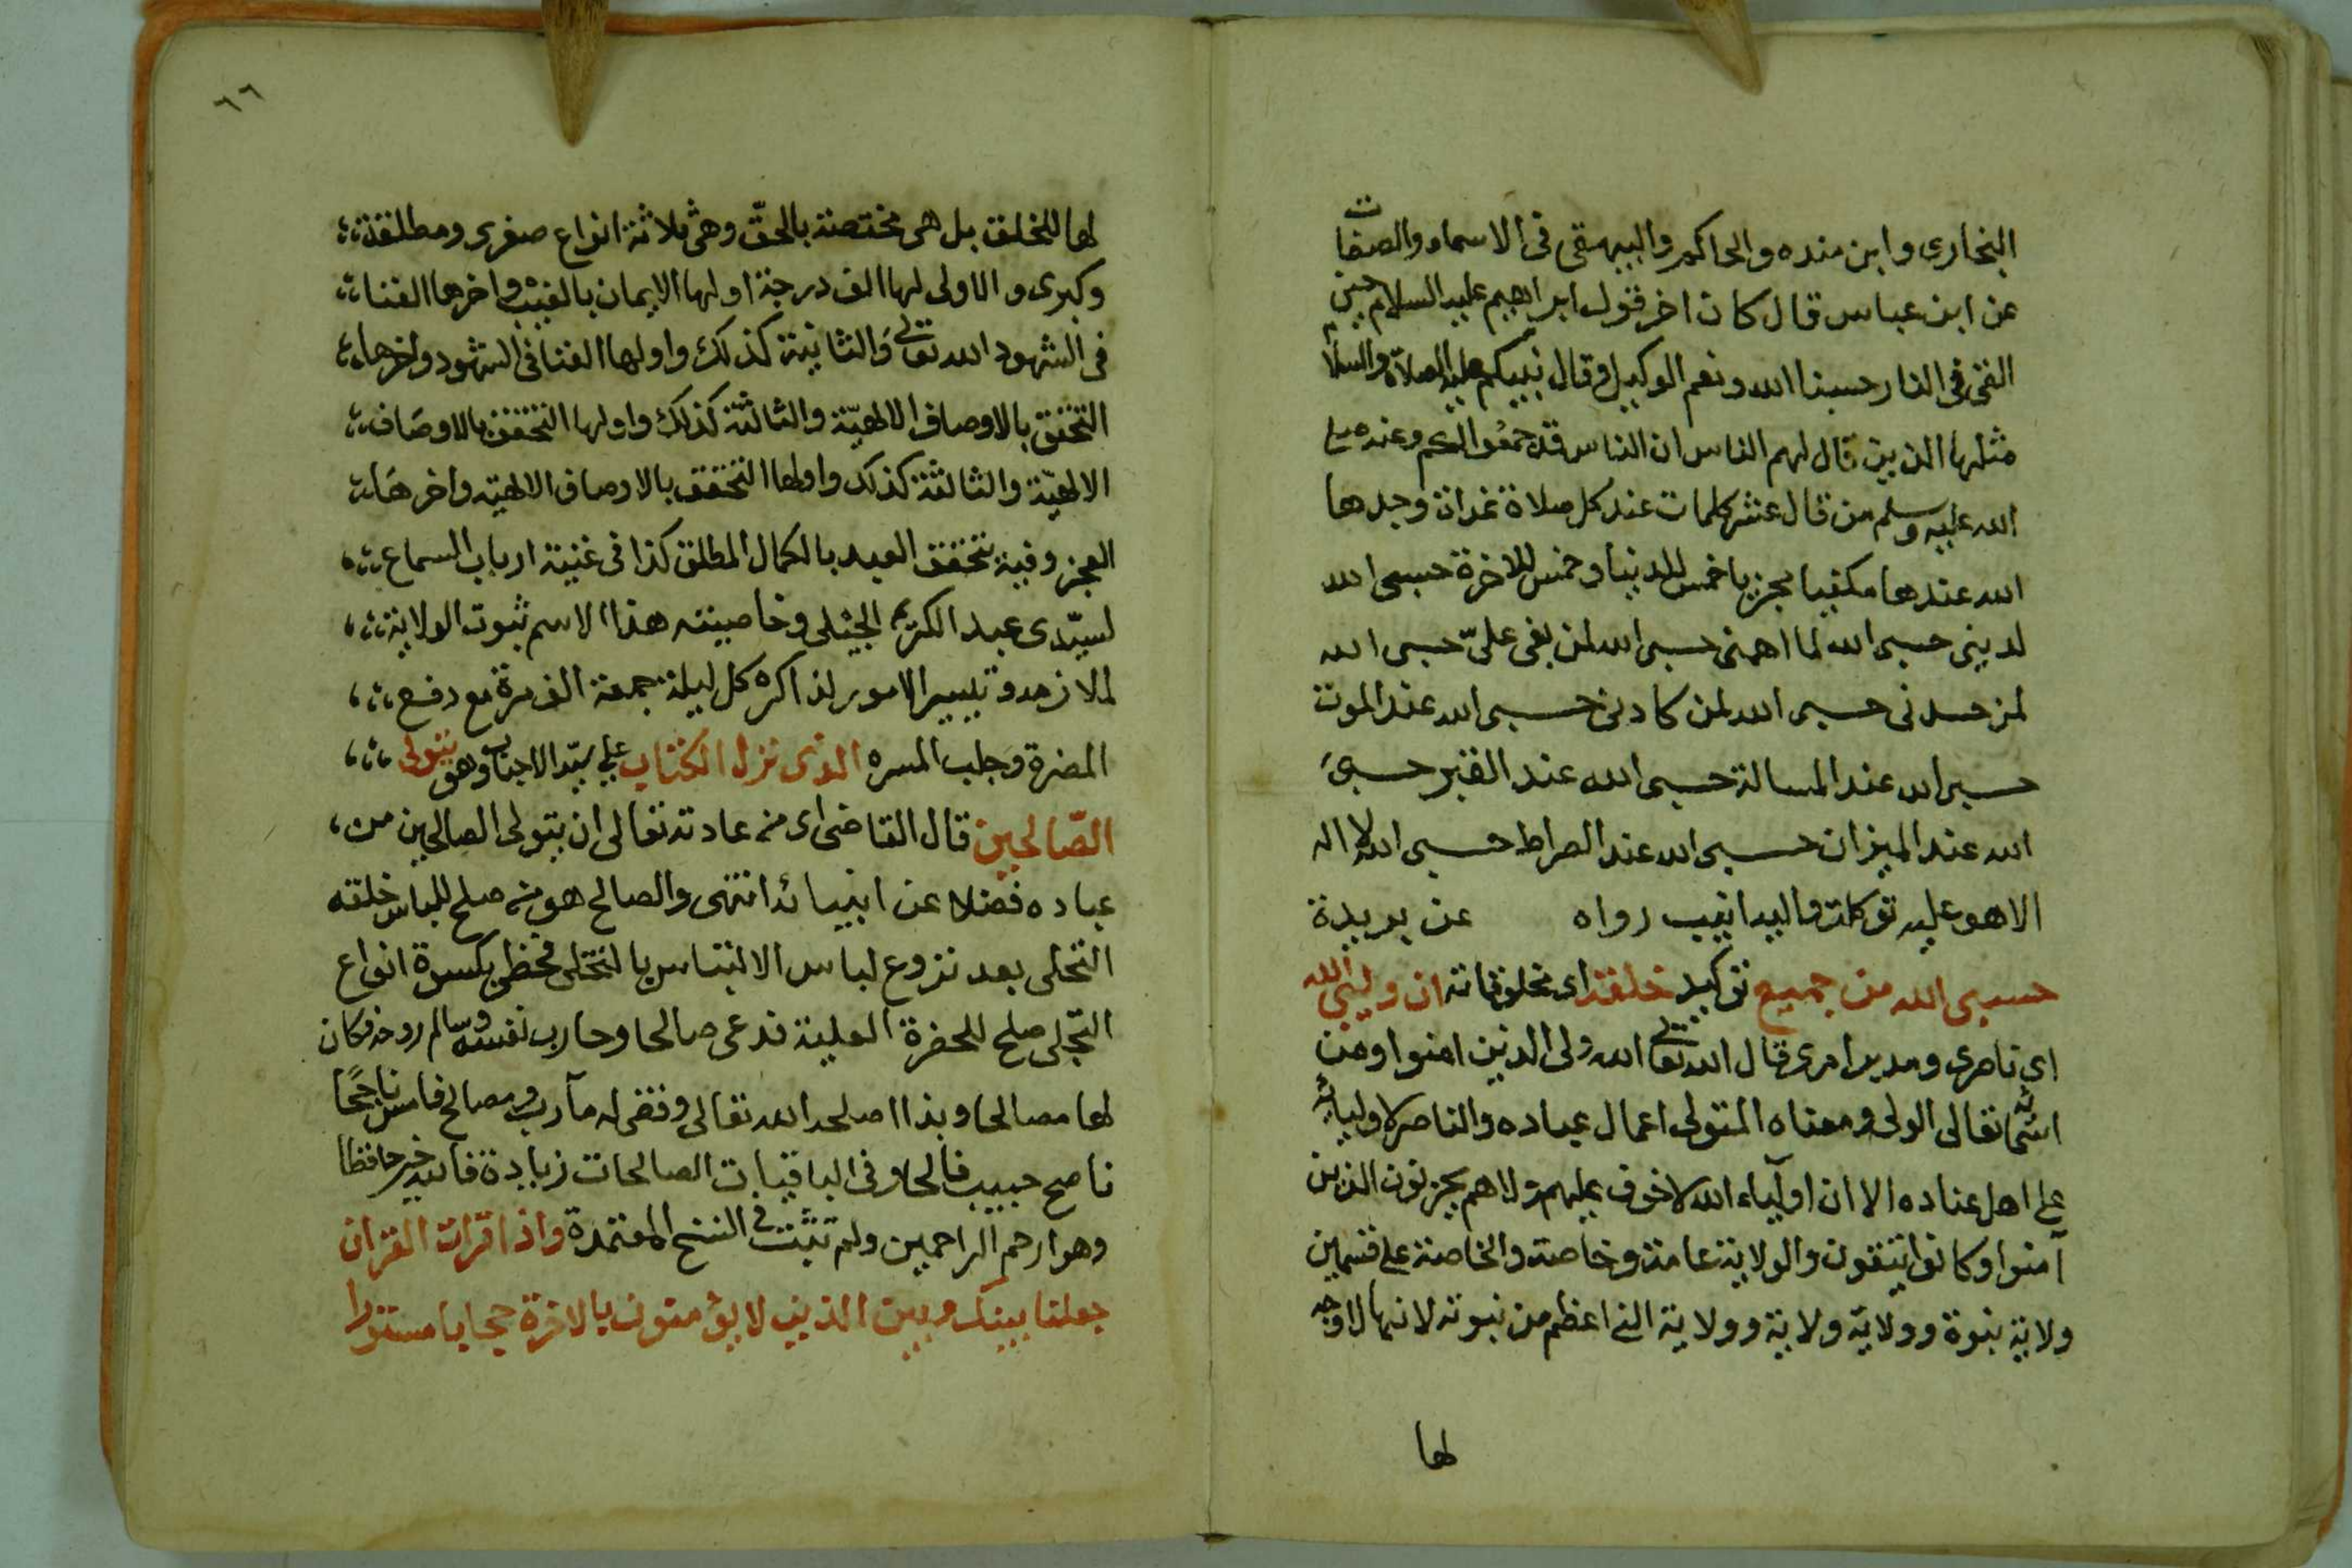 البخارى وابن منده والحاكم والبيهقى فى الاسماء والصفات
عن ابن عباس قال كان اخر قول ابراهيم عليه السلام حين
القى فى النار حسبنا الله ونعم الوكيل وقال نبيكم عليه الصلاة والسلام
مثلها الذين قال لهم الناس ان الناس قد جمعوا لكم وعنه صلى
الله عليه وسلم من قال عشر كلمات عند كل صلاة غداة وجدها
الله عندها مكفيا بجزيا خمس للدنيا وخمس للاخرة حسبى الله
لدينى حسبى الله لما اهمنى حسبى الله لمن بغى علىّ حسبى الله
لمن حسدنى حسبى الله لمن كادنى حسبى الله عند الموت
حسبى الله عند المسالة حسبى الله عند القبر حسبى
الله عند الميزان حسبى الله عند الصراط حسبى الله لا اله
الا هو عليه توكلت واليه انيب رواه عن بريدة
حسبى الله من جميع توكيد خلقه اى مخلوقاته ان وليى الله
اى ناصرى ومدبر امرى قال الله تعالى الله ولى الذين امنوا ومن
اسمائه تعالى الولى ومعناه المتولى اعمال عباده والناصر لاوليائه
على اهل عناده الا ان اولياء الله لا خوف عليهم ولا هم يحزنون الذين
آمنوا وكانوا يتقون والولاية عامة وخاصة والخاصة على قسمين
ولاية نبوة وولاية ولاية وولاية النبى اعظم من نبوته لانها لا وجه
لها
٦٦
لها للخلق بل هى مختصة بالحقّ وهى ثلاثة انواع صغرى ومطلقة
وكبرى والاولى لها الف درجة اولها الايمان بالغيب واخرها الفنا
فى الشهود الله تعالى والثانية كذلك واولها الفنا فى الشهود واخرها
التحقق بالاوصاف الالهيّة والثالثة كذلك واولها التحقق بالاوصاف
الالهيّة والثالثة كذلك واولها التحقق بالاوصاف الالهيّه واخرها
العجز وفيه تحقق العبد بالكمال المطلق كذا فى غنية ارباب السماع
لسيّدى عبد الكريم الجيلى وخاصيته هذا الاسم ثبوت الولاية
لملازمه وتيسير الامور لذاكره كل ليلة جمعة الف مرة مع دفع
المضرة وجلب المسره الذى نزل الكتاب على سيّد الاحباب وهو يتولى
الصّالحين قال القاضى اى من عادته تعالى ان يتولى الصالحين من
عباده فضلا عن انبيائه انتهى والصالح هو من صلح للباس خلقه
التحلى بعد نزوع لباس الالتباس بالتخلى فحظى بكسرة انواع
التجلى صلح للحضرة العلية فدعى صالحا وحارب نفسه وسالم روحه فكان
لها مصالحا وبذا اصلحه الله تعالى وقضى له مآرب ومصالح فامسى ناجحا
ناصح حبيب فالحا وفى الباقيات الصالحات زيادة فالله خير حافظا
وهو ارحم الراحمين ولم تثبت فى النسخ المعتمدة واذا قرات القران
جعلنا بينك وبين الذين لا يؤمنون بالاخرة حجابا مستورا